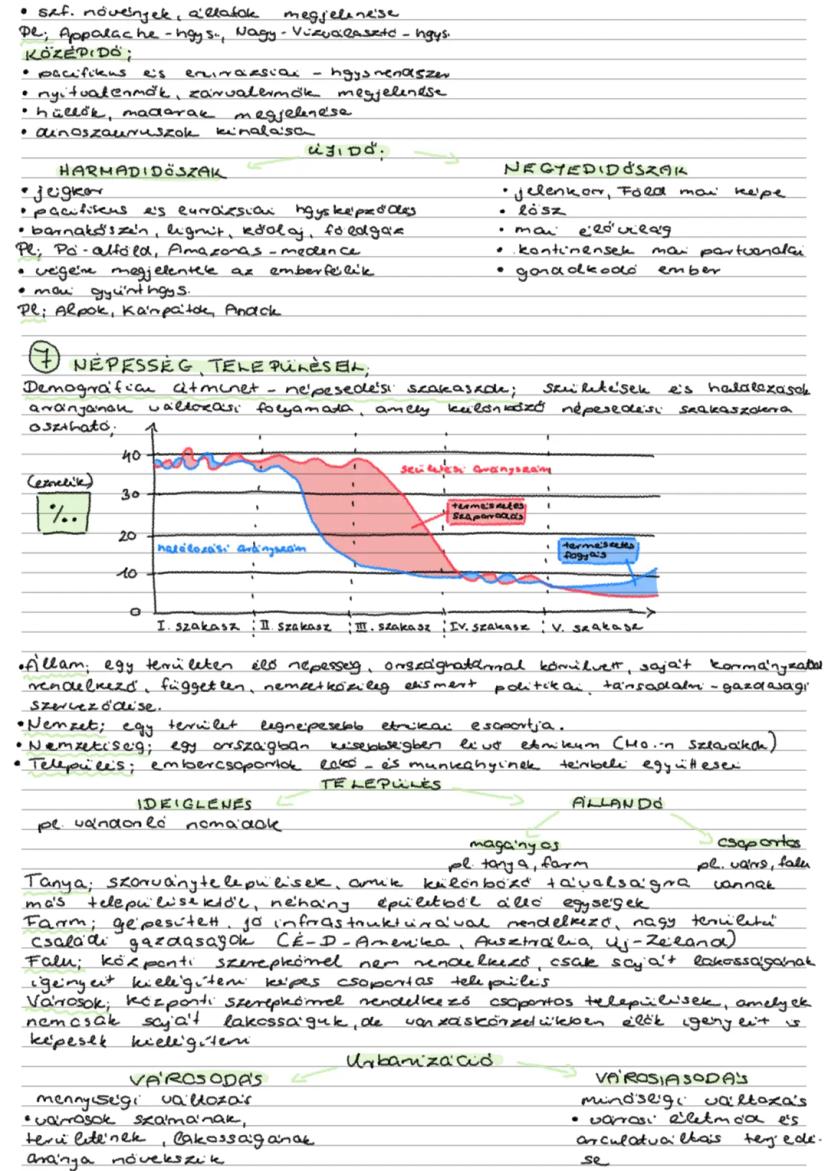 • szf. növények, állatok megjelenése
Pl; Appalache-hgys., Nagy-Vízválasztó-hgys.
KÖZÉPIDŐ;
• pacifikus és eurázsiai - hgysrendszer
• nyitvatermők, zárvatermők megjelenése
• hüllők, madarak megjelenése
• dinoszauruszok kihalása
ÚJIDŐ;
HARMADIDŐSZAK
• jégkor
• pacifikus és eurázsiai hgysképződés
• barnakőszén, lignit, kőolaj, földgáz
Pl; Pó-alföld, Amazonas-medence
• végére megjelentek az emberfélék
• mai gyűrthgys.
Pl; Alpok, Kárpátok, Andok
NEGYEDIDŐSZAK
• jelenkor, Föld mai képe
• lösz
• mai élővilág
• kontinensek mai partvonalai
• gondolkodó ember
7 NÉPESSÉG, TELEPÜLÉSEL;
Demográfiai átmenet - népesedési szakaszok; születések és halálozások
arányának változási folyamata, amely különböző népesedési szakaszokra
osztható;
(ezrelék)
%..
40
30
20
10
0
születési arányszám
természetes
szaporodás
halálozási arányszám
természetes
fogyás
I. szakasz
II. szakasz
III. szakasz
IV. szakasz
V. szakasz
• Állam; egy területen élő népesség, országhatárral körülvett, saját kormányzattal
rendelkező, független, nemzetközileg elismert politikai, társadalmi-gazdasági
szerveződése.
• Nemzet; egy terület legnépesebb etnikai csoportja.
• Nemzetiség; egy országban kisebbségben lévő etnikum (Mo.-n szlovákok)
• Település; embercsoportok lakó- és munkahyinek térbeli együttesei
TELEPÜLÉS
IDEIGLENES
pl. vándorló nomádok
ÁLLANDÓ
magányos
pl. tanya, farm
csoportos
pl. város, falu
Tanya; szórványtelepülések, amik különböző távolságra vannak
más településektől, néhány épületből álló egységek
Farm; gépesített, jó infrastruktúrával rendelkező, nagy területű
családi gazdaságok (É-D-Amerika, Ausztrália, Új-Zéland)
Falu; központi szerepkörrel nem rendelkező, csak saját lakosságának
igényeit kielégíteni képes csoportos település
Városok; központi szerepkörrel rendelkező csoportos települések, amelyek
nemcsak saját lakosságuk, de vonzáskörzetükben élők igényeit is
képesek kielégíteni
Urbanizáció
VÁROSODÁS
mennyiségi változás
• városok számának,
területének, lakosságának
aránya növekszik
VÁROSIASODÁS
minőségi változás
• városi életmód és
arculatváltás terjedé-
se